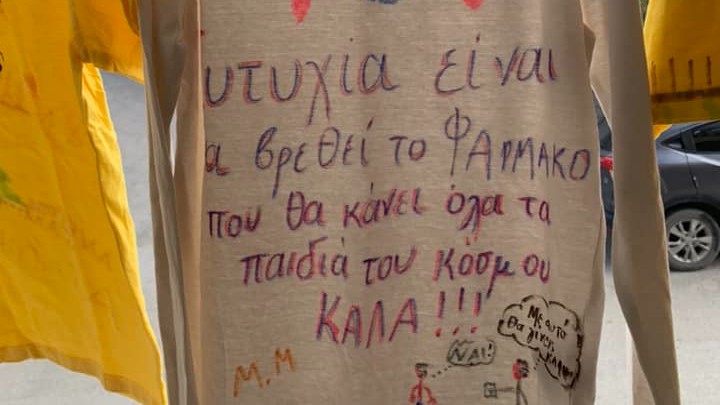 υτυχία είναι
α βρεθεί το ΦΑΡΜΑΚΟ
που θα κάνει όλα τα
παιδιά του κόσμου
ΚΑΛΑ!!!
Μ.Μ
ΝΑΙ!
Με αυτό
θα γίνεις